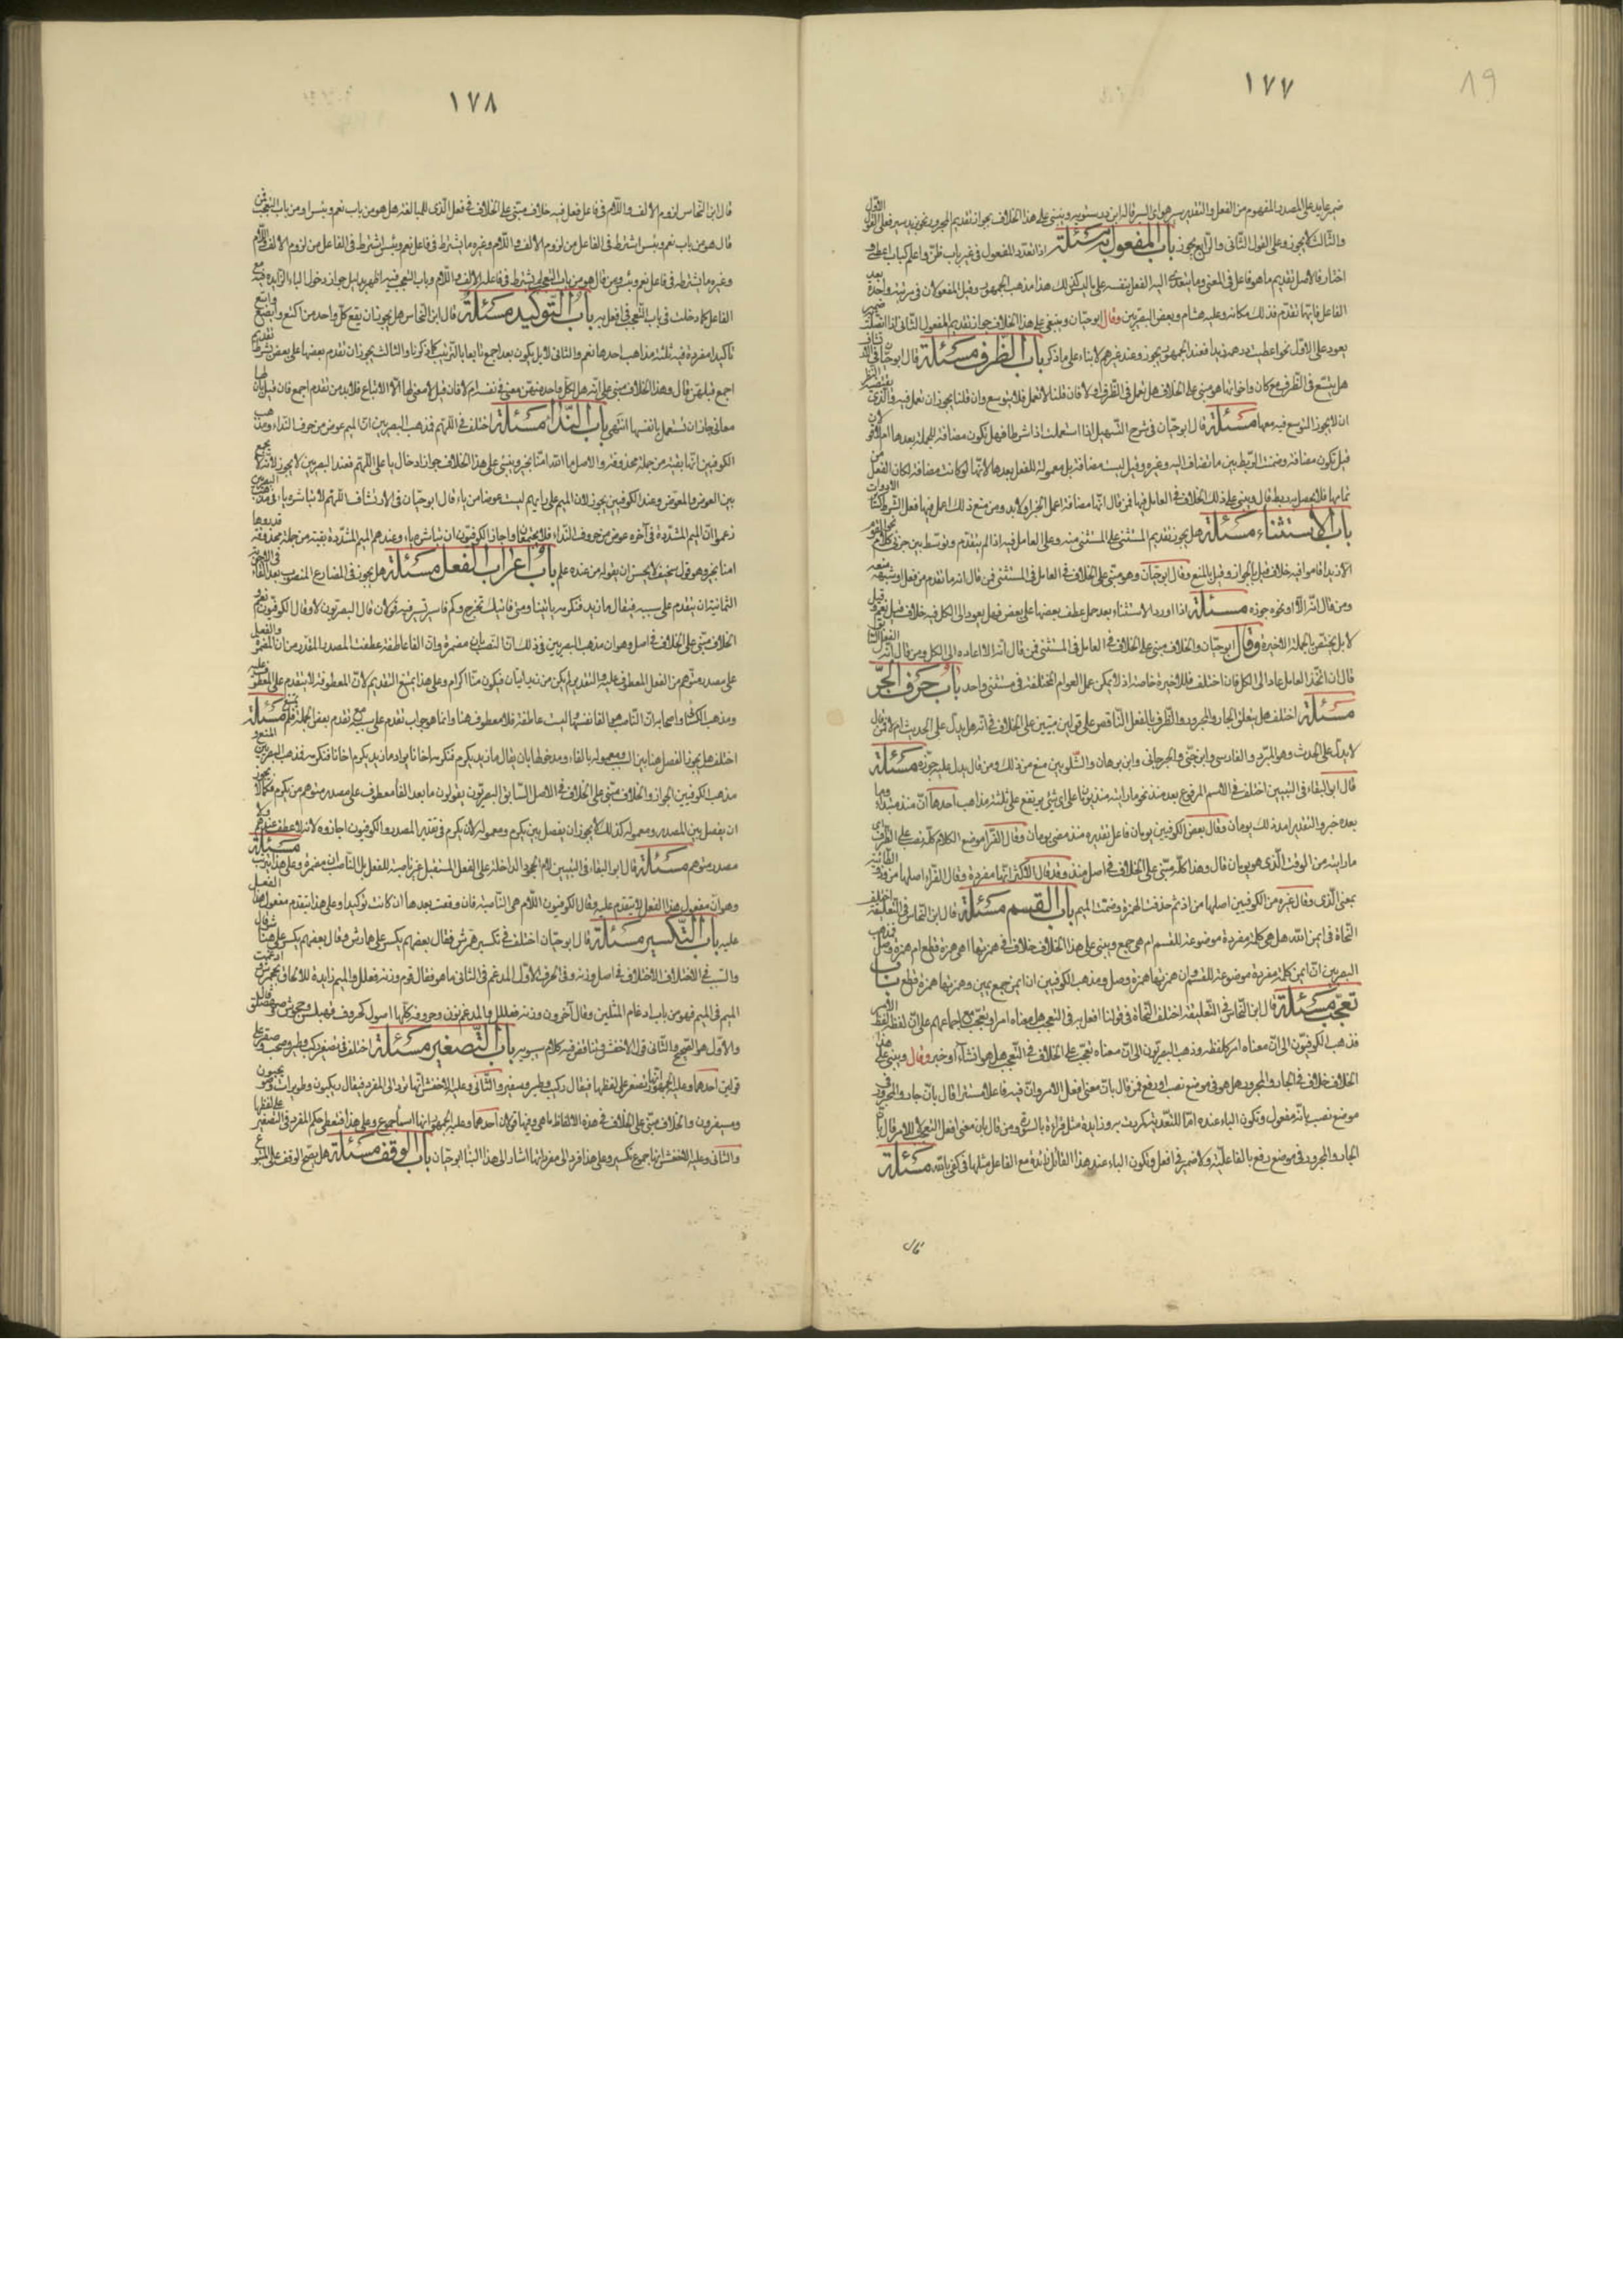 ١٧٧
19
ضمير عايد على المصدر المفهوم من الفعل والتقدير سير هو اى السير قاله ابن درستويه وينبنى على هذا الخلاف جواز تقديم المجرور نحو بزيد سير فعلى القول الاول
والثالث لا يجوز وعلى القول الثانى والرابع يجوز باب المفعول به مسئلة اذا تعدد المفعول فى غير باب ظن واعلم كباب اعطى و
اختار فالاصل تقديم ما هو فاعل فى المعنى وما يتعدى اليه الفعل بنفسه على ما ليس كذلك هذا مذهب الجمهور وقيل المفعولان فى مرتبة واحدة بعد
الفاعل فايهما تقدم فذلك مكانه وعليه هشام وبعض البصريين وقال ابو حيان وينبنى على هذا الخلاف جواز تقديم المفعول الثانى اذا اتصل به ضمير
يعود على الاول نحو اعطيت درهمه زيدا فعند الجمهور يجوز وعند غيرهم لا بناء على ما ذكر باب الظرف مسئلة قال ابو حيان
هل يتسع فى الظرف مع كان واخواتها هو مبنى على الخلاف هل تعمل فى الظرف ام لا فان قلنا لا تعمل فلا يتوسع وان قلنا يجوز ان تعمل فيه والذى
ان لا يجوز التوسع فيه معها مسئلة قال ابو حيان فى شرح التسهيل اذا استعملت اذا شرطا فهل تكون مضافة للجملة بعدها ام لا قولان
قيل تكون مضافة وضمنت الربط بين ما تضاف اليه وغيره وقيل ليست مضافة بل معمولة للفعل بعدها لانها لو كانت مضافة لكان الفعل من
تمامها فلا يحصل بها ربط قال وينبنى على ذلك الخلاف فى العامل فيها فمن قال انها مضافة اعمل الجزاء ولا بد ومن منع ذلك اعمل فيها فعل الشرط كسائر الادوات
باب الاستثناء مسئلة هل يجوز تقديم المستثنى على المستثنى منه وعلى العامل فيه اذا لم يتقدم وتوسط بين جزئى كلام نحو القوم
الا زيدا قاموا فيه خلاف قيل بالجواز وقيل بالمنع وقال ابو حيان وهو مبنى على الخلاف فى العامل فى المستثنى فمن قال انه ما تقدم من فعل او شبهه منعه
ومن قال انه الا او نحوه جوزه مسئلة اذا اورد الاستثناء بعد جمل عطف بعضها على بعض فهل يعود الى الكل فيه خلاف قيل نعم وقيل
لا بل يختص بالجملة الاخيرة وقال ابو حيان والخلاف مبنى على الخلاف فى العامل فى المستثنى فمن قال انه الا اعاده الى الكل ومن قال انه الفعل السابق
قال ان اتحد العامل عاد الى الكل فان اختلف فللاخيرة خاصة اذ لا يمكن عمل العوامل المختلفة فى مستثنى واحد باب حرف الجر
مسئلة اختلف هل يتعلق الجار والمجرور والظرف بالفعل الناقص على قولين مبنيين على الخلاف فى انه هل يدل على الحدث ام لا فمن قال
لا يدل على الحدث وهو المبرد والفارسى وابن جنى والجرجانى وابن برهان والشلوبين منع من ذلك ومن قال يدل عليه جوزه مسئلة
قال ابو البقاء فى التبيين اختلف فى الاسم المرفوع بعد منذ نحو ما رايته منذ يومان على اى شئ يرتفع على ثلثة مذاهب احدها ان منذ مبتدا وما
بعده خبر والتقدير امد ذلك يومان وقال بعض الكوفيين يومان فاعل تقديره منذ مضى يومان وقال الفرا موضع الكلام كله نصب على الظرف اى
ما رايته من الوقت الذى هو يومان قال وهذا كله مبنى على الخلاف فى اصل منذ وقد قال الاكثر انها مفردة وقال الفراء اصلها من وذو الطائية
بمعنى الذى وقال غيره من الكوفيين اصلها من اذ ثم حذفت الهمزة وضمت الميم باب القسم مسئلة قال ابن النحاس فى التعليقة اختلف
النحاة فى ايمن الله هل هى كلمة مفردة موضوعة للقسم ام هى جمع وينبنى على هذا الخلاف خلاف فى همزتها اهى همزة قطع ام همزة وصل فذهب
البصريين ان ايمن كلمة مفردة موضوعة للقسم وان همزتها همزة وصل ومذهب الكوفيين ان ايمن جمع يمين وهمزتها همزة قطع باب
تعجب مسئلة قال ابن النحاس فى التعليقة اختلف النحاة فى قولنا افعل به فى التعجب هل معناه امر او تعجب مع اجماعهم على ان لفظه لفظ الامر
فذهب الكوفيون الى ان معناه امر كلفظه وذهب البصريون الى ان معناه تعجب على الخلاف فى التعجب هل هو انشاء او خبر وقال وينبنى على هذا
الخلاف خلاف فى الجار والمجرور هل هو فى موضع نصب او رفع فمن قال بان معنى افعل الامر وان فيه فاعلا مستترا قال بان الجار والمجرور فى
موضع نصب بانه مفعول وتكون الباء عنده اما للتعدية كمررت به او زايدة مثل قراءة بالسور ومن قال بان معنى افعل التعجب لا الامر قال بان
الجار والمجرور فى موضع رفع بالفاعلية ولا ضمير فى افعل وتكون الباء عند هذا القائل زائدة مع الفاعل مثلها فى كفى بالله مسئلة
قال
١٧٨
قال ابن النحاس لزوم الالف واللام فى فاعل فعل فيه خلاف مبنى على الخلاف فى فعل الذى للمبالغة هل هو من باب نعم وبئس او من باب التعجب فمن
قال هو من باب نعم وبئس اشترط فى الفاعل من لزوم الالف واللام وغيره ما يشترط فى فاعل نعم وبئس
وغيره ما يشترط فى فاعل نعم وبئس ومن قال هو من باب التعجب لم يشترط فى فاعله الالف واللام وباب التعجب فيه اظهر بدليل جواز دخول الباء الزايدة مع
الفاعل كما دخلت فى باب التعجب فى افعل به باب التوكيد مسئلة قال ابن النحاس هل يجوز ان يقع كل واحد من اكتع وابصع وابتع
تاكيدا مفردة فيه ثلثة مذاهب احدها نعم والثانى لا بل يكون بعد اجمع تابعا بالترتيب كما ذكرنا والثالث يجوز ان تقدم بعضها على بعض بشرط تقديم
اجمع قبلهن قال وهذا الخلاف مبنى على انه هل لكل واحد منهن معنى فى نفسه ام لا فان قيل لا معنى لها الا الاتباع فلا بد من تقدم اجمع فان قيل بان لها
معانى جاز ان تستعمل بانفسها انتهى باب الندا مسئلة اختلف فى اللهم فذهب البصريين ان الميم عوض من حرف النداء ومذهب
الكوفيين انها بقية من جملة محذوفة والاصل يا الله امنا بخير وينبنى على هذا الخلاف جواز ادخال يا على اللهم فعند البصريين لا يجوز لانه لا يجمع
بين العوض والمعوض وعند الكوفيين يجوز لان الميم على رايهم ليست عوضا من ياء قال ابو حيان فى الارتشاف اللهم لا تباشره ياء فى مذهب البصريين
زعموا ان الميم المشددة فى آخره عوض من حروف النداء فلا يجتمعان واجاز الكوفيون ان تباشره ياء وعندهم الميم المشددة بقية من جملة محذوفة قدروها
امنا بخير وهو قول سخيف لا يحسن ان يقوله من عنده علم باب اعراب الفعل مسئلة هل يجوز فى المضارع المنصوب بعد الفاء فى الاجوبة
الثمانية ان يتقدم على سببه فيقال ما زيد فنكرمه ياتينا ومتى فاتيك تخرج وكم فاسير تسير فيه قولان قال البصريون لا وقال الكوفيون نعم
الخلاف مبنى على الخلاف فى اصل وهو ان مذهب البصريين فى ذلك ان النصب بان مضمرة وان الفا عاطفة عطفت المصدر المقدر من ان المضمرة والفعل
على مصدر متوهم من الفعل المعطوف عليه والتقدير لم يكن من زيد اتيان فيكون منا اكرام وعلى هذا يمتنع التقديم لان المعطوف لا يتقدم على المعطوف عليه
ومذهب الكسائى واصحابه ان الناصب هى الفا نفسها وليست عاطفة فلا معطوف هنا وانما هو جواب تقدم على سببه مع تقدم بعض الجملة فلم يمتنع مسئلة
اختلف هل يجوز الفصل هنا بين السبب ومعموله بالفاء ومدخولها بان يقال ما زيد يكرم فنكرمه اخانا يراد ما زيد يكرم اخانا فنكرمه فذهب البصريين المنع و
مذهب الكوفيين الجواز والخلاف مبنى على الخلاف فى الاصل السابق البصريون يقولون ما بعد الفا معطوف على مصدر متوهم من يكرم فكما لا يجوز
ان يفصل بين المصدر ومعموله كذلك لا يجوز ان يفصل بين يكرم ومعموله لان يكرم فى تقدير المصدر والكوفيون اجازوه لانه لا عطف عندهم ولا
مصدر متوهم مسئلة قال ابو البقاء فى التبيين لام الجحود الداخلة على الفعل المستقبل غير ناصبة للفعل بل الناصب ان مضمرة وعلى هذا يترتب مسئلة
وهو ان مفعول هذا الفعل لا يتقدم عليه وقال الكوفيون اللام هى الناصبة فان وقعت بعدها ان كانت توكيدا وعلى هذا يتقدم مفعول هذا الفعل
عليه باب التكسير مسئلة قال ابو حيان اختلف فى تكسير همرش فقال بعضهم يكسر على همارش وقال بعضهم يكسر على هنامر
والسبب فى الاختلاف الاختلاف فى اصل وزنه وفى الحرف الاول المدغم فى الثانى ما هو فقال قوم وزنه فعلل والميم زايدة للالحاق بجحمرش ادغمت
الميم فى الميم فهو من باب ادغام المثلين وقال آخرون وزنه فعللل والمدغم نون وحروفه كلها اصول كحروف قهبلس وجحمرش وصهصلق قال
والاول هو الصحيح والثانى قول الاخفش وتناقض فيه كلام سيبويه باب التصغير مسئلة اختلف فى تصغير ركب وطير وصحب وسفر على
قولين احدهما وعليه الجمهور انها تصغر على لفظها فيقال ركيب وطيير وسفير والثانى وعليه الاخفش انها ترد الى المفرد فيقال رويكبون وطويرات وصويحبون
ومسيفرون والخلاف مبنى على الخلاف فى هذه الالفاظ ما هى وفيها قولان احدهما وعليه الجمهور انها اسماء جموع وعلى هذا فتعطى حكم المفرد فى التصغير على لفظها
والثانى وعليه الاخفش انها جموع تكسير وعلى هذا فترد الى مفرداتها اشار الى هذا البنا ابو حيان باب الوقف مسئلة هل يصح الوقف على المتبوع